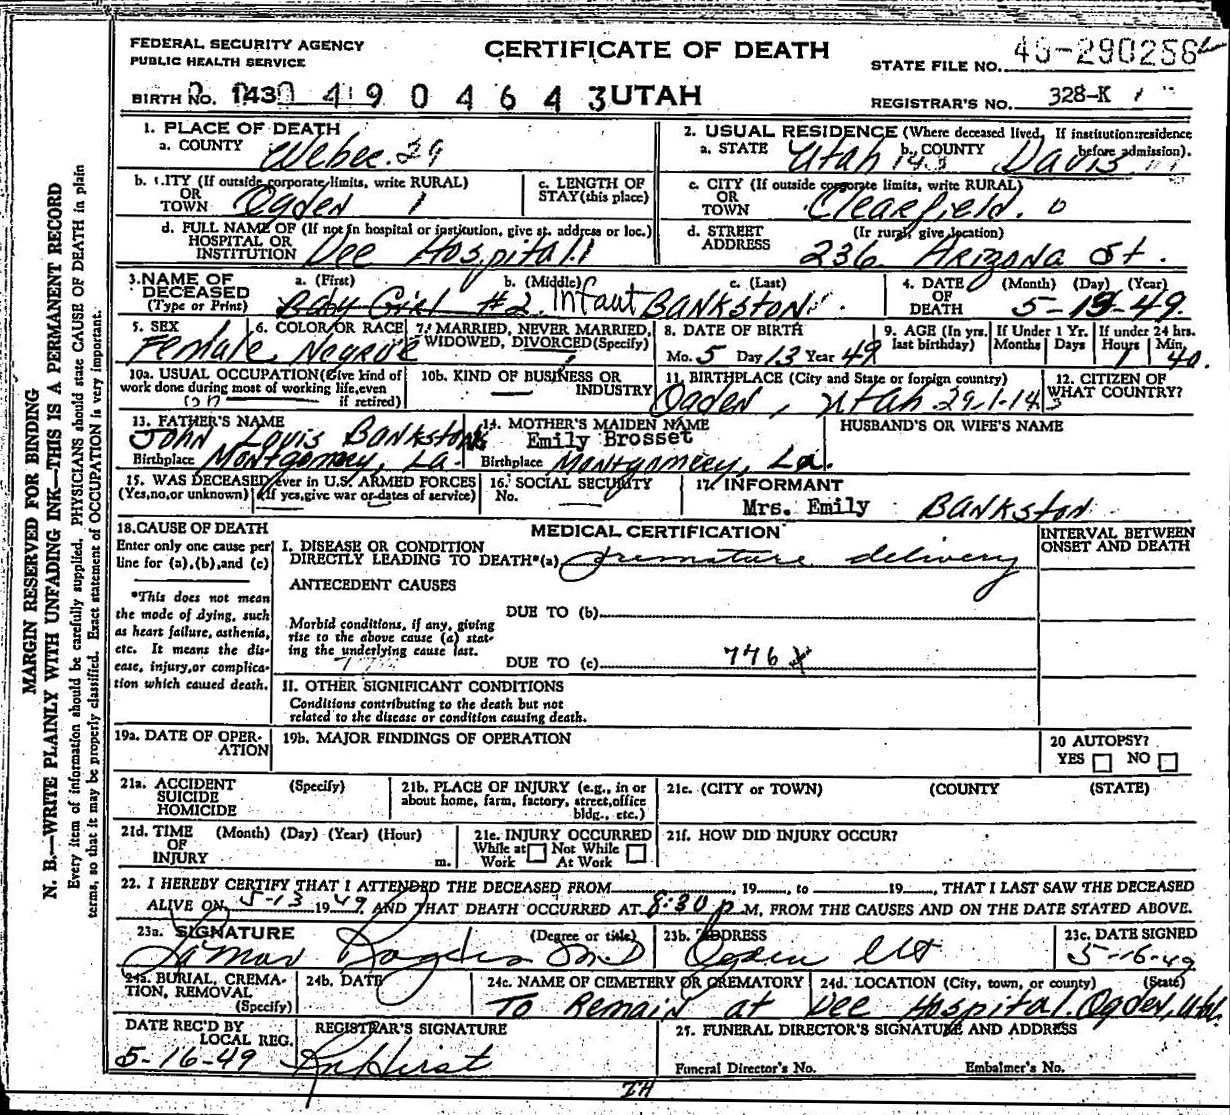 FEDERAL SECURITY AGENCY
PUBLIC HEALTH SERVICE
CERTIFICATE OF DEATH
STATE FILE NO. 49-290256
BIRTH NO. 1430 490464 3 UTAH
REGISTRAR'S NO. 328-K 1
1. PLACE OF DEATH
a. COUNTY Weber. 29
2. USUAL RESIDENCE (Where deceased lived. If institution:residence before admission).
a. STATE Utah 143 b. COUNTY Davis
b. CITY (If outside corporate limits, write RURAL) OR TOWN Ogden 1
c. LENGTH OF STAY (this place)
c. CITY (If outside corporate limits, write RURAL) OR TOWN Clearfield. 0
d. FULL NAME OF (If not in hospital or institution, give st. address or loc.) HOSPITAL OR INSTITUTION Dee Hospital. 1
d. STREET ADDRESS (If rural, give location) 236 Arizona St.
3. NAME OF DECEASED (Type or Print)
a. (First) Baby Girl #2 b. (Middle) Infant c. (Last) BANKSTON
4. DATE OF DEATH (Month) (Day) (Year) 5-13-49.
5. SEX Female
6. COLOR OR RACE Negroe
7. MARRIED, NEVER MARRIED, WIDOWED, DIVORCED (Specify)
8. DATE OF BIRTH Mo. 5 Day 13 Year 49
9. AGE (In yrs. last birthday) If Under 1 Yr. Months Days If under 24 hrs. Hours 1 Min. 40.
10a. USUAL OCCUPATION (Give kind of work done during most of working life, even if retired)
10b. KIND OF BUSINESS OR INDUSTRY —
11. BIRTHPLACE (City and State or foreign country) Ogden, Utah 29-1-143
12. CITIZEN OF WHAT COUNTRY?
13. FATHER'S NAME John Louis Bankston
Birthplace Montgomery, La.
14. MOTHER'S MAIDEN NAME Emily Brosset
Birthplace Montgomery, La.
HUSBAND'S OR WIFE'S NAME
15. WAS DECEASED ever in U.S. ARMED FORCES (Yes, no, or unknown) (If yes, give war or dates of service)
16. SOCIAL SECURITY No. —
17. INFORMANT
Mrs. Emily BANKSTON
18. CAUSE OF DEATH
Enter only one cause per line for (a), (b), and (c)
*This does not mean the mode of dying, such as heart failure, asthenia, etc. It means the disease, injury, or complication which caused death.
MEDICAL CERTIFICATION
INTERVAL BETWEEN ONSET AND DEATH
I. DISEASE OR CONDITION
DIRECTLY LEADING TO DEATH*(a) premature delivery
ANTECEDENT CAUSES
DUE TO (b)
Morbid conditions, if any, giving rise to the above cause (a) stating the underlying cause last.
DUE TO (c) 776 x
II. OTHER SIGNIFICANT CONDITIONS
Conditions contributing to the death but not related to the disease or condition causing death.
19a. DATE OF OPERATION
19b. MAJOR FINDINGS OF OPERATION
20 AUTOPSY?
YES NO
21a. ACCIDENT SUICIDE HOMICIDE (Specify)
21b. PLACE OF INJURY (e.g., in or about home, farm, factory, street, office bldg., etc.)
21c. (CITY or TOWN) (COUNTY) (STATE)
21d. TIME OF INJURY (Month) (Day) (Year) (Hour) m.
21e. INJURY OCCURRED
While at Work Not While At Work
21f. HOW DID INJURY OCCUR?
22. I HEREBY CERTIFY THAT I ATTENDED THE DECEASED FROM , 19 , to 19 , THAT I LAST SAW THE DECEASED
ALIVE ON 5-13 1949, AND THAT DEATH OCCURRED AT 8:30 P M, FROM THE CAUSES AND ON THE DATE STATED ABOVE.
23a. SIGNATURE (Degree or title) MD
23b. ADDRESS Ogden Ut
23c. DATE SIGNED 5-16-49
24a. BURIAL, CREMATION, REMOVAL (Specify)
24b. DATE
24c. NAME OF CEMETERY OR CREMATORY
24d. LOCATION (City, town, or county) (State)
To Remain at Dee Hospital. Ogden, Utah.
DATE REC'D BY LOCAL REG. 5-16-49
REGISTRAR'S SIGNATURE
25. FUNERAL DIRECTOR'S SIGNATURE AND ADDRESS
Funeral Director's No. Embalmer's No.
MARGIN RESERVED FOR BINDING
N. B.—WRITE PLAINLY WITH UNFADING INK—THIS IS A PERMANENT RECORD
Every item of information should be carefully supplied. PHYSICIANS should state CAUSE OF DEATH in plain
terms, so that it may be properly classified. Exact statement of OCCUPATION is very important.